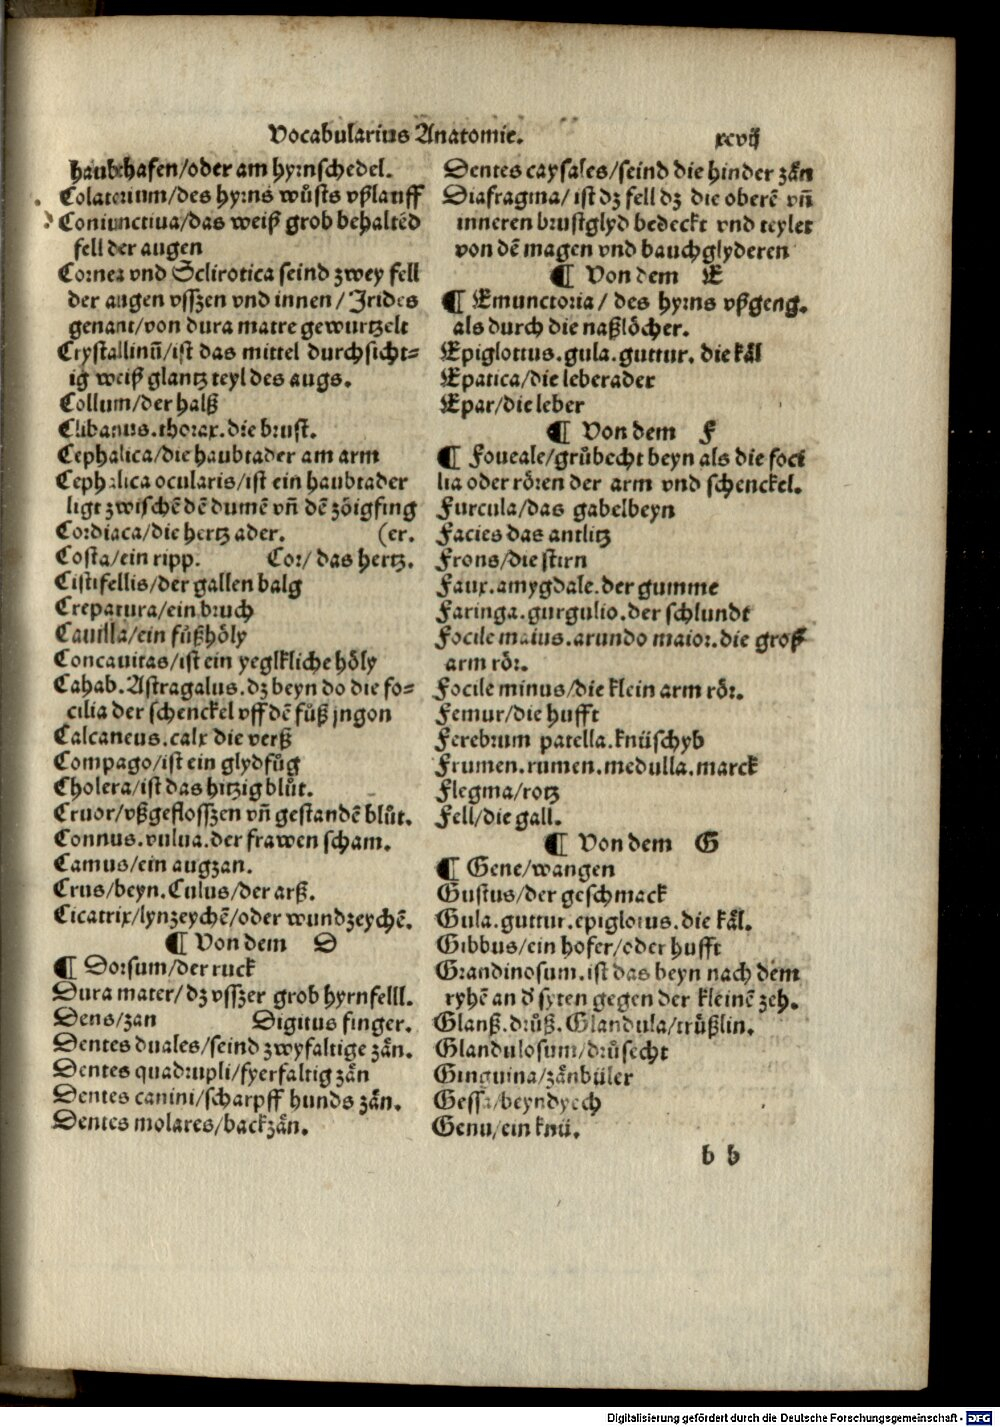 Vocabularius Anatomie. xcvij
haubthafen/oder am hyrnschedel.
Colatorium/des hyrns wůsts vßlauff
Coniunctiua/das weiß grob behaltẽd
fell der augen
Cornea vnd Sclirotica seind zwey fell
der augen vsszen vnd innen/Irides
genant/von dura matre gewurtzelt
Crystallinũ/ist das mittel durchsicht-
ig weiß glantz teyl des augs.
Collum/der halß
Clibanus.thorax.die brust.
Cephalica/die haubtader am arm
Cephalica ocularis/ist ein haubtader
ligt zwischẽ dẽ dumẽ vñ dẽ zöigfing
Cordiaca/die hertz ader. (er.
Costa/ein ripp. Cor/ das hertz.
Cistifellis/der gallen balg
Crepatura/ein bruch
Cauilla/ein fůßhöly
Concauitas/ist ein yeglkliche höly
Cahab.Astragalus.dz beyn do die fo-
cilia der schenckel vff dẽ fůß jngon
Calcaneus.calx die verß
Compago/ist ein glydfůg
Cholera/ist das hitzig blůt.
Cruor/vßgeflosszen vñ gestandẽ blůt.
Connus.vulua.der frawen scham.
Camus/ein augzan.
Crus/beyn.Culus/der arß.
Cicatrix/lynzeychẽ/oder wundzeychẽ.
¶ Von dem D
¶ Dorsum/der ruck
Dura mater/dz vsszer grob hyrnfelll.
Dens/zan Digitus finger.
Dentes duales/seind zwyfaltige zän.
Dentes quadrupli/fyerfaltig zän
Dentes canini/scharpff hunds zän.
Dentes molares/backzän.
Dentes caysales/seind die hinder zän
Diafragma/ ist dz fell dz die oberẽ vñ
inneren brustglyd bedeckt vnd teylet
von dẽ magen vnd bauchglyderen
¶ Von dem E
¶ Emunctoria/ des hyrns vßgeng.
als durch die naßlöcher.
Epiglottus.gula.guttur. die käl
Epatica/die leberader
Epar/die leber
¶ Von dem F
¶ Foueale/grůbecht beyn als die foci
lia oder rören der arm vnd schenckel.
Furcula/das gabelbeyn
Facies das antlitz
Frons/die stirn
Faux.amygdale.der gumme
Faringa.gurgulio.der schlundt
Focile maius.arundo maior.die groß
arm rör.
Focile minus/die klein arm rör.
Femur/die hufft
Ferebrum patella.knüschyb
Frumen.rumen.medulla.marck
Flegma/rotz
Fell/die gall.
¶ Von dem G
¶ Gene/wangen
Gustus/der geschmack
Gula.guttur.epiglotus.die käl.
Gibbus/ein hofer/oder hufft
Grandinosum.ist das beyn nach dem
ryhẽ an d' syten gegen der kleinẽ zeh.
Glanß.drůß.Glandula/trůßlin.
Glandulosum/drůsecht
Ginguina/zänbüler
Gessa/beyndyech
Genu/ein knü.
b b
Digitalisierung gefördert durch die Deutsche Forschungsgemeinschaft - DFG